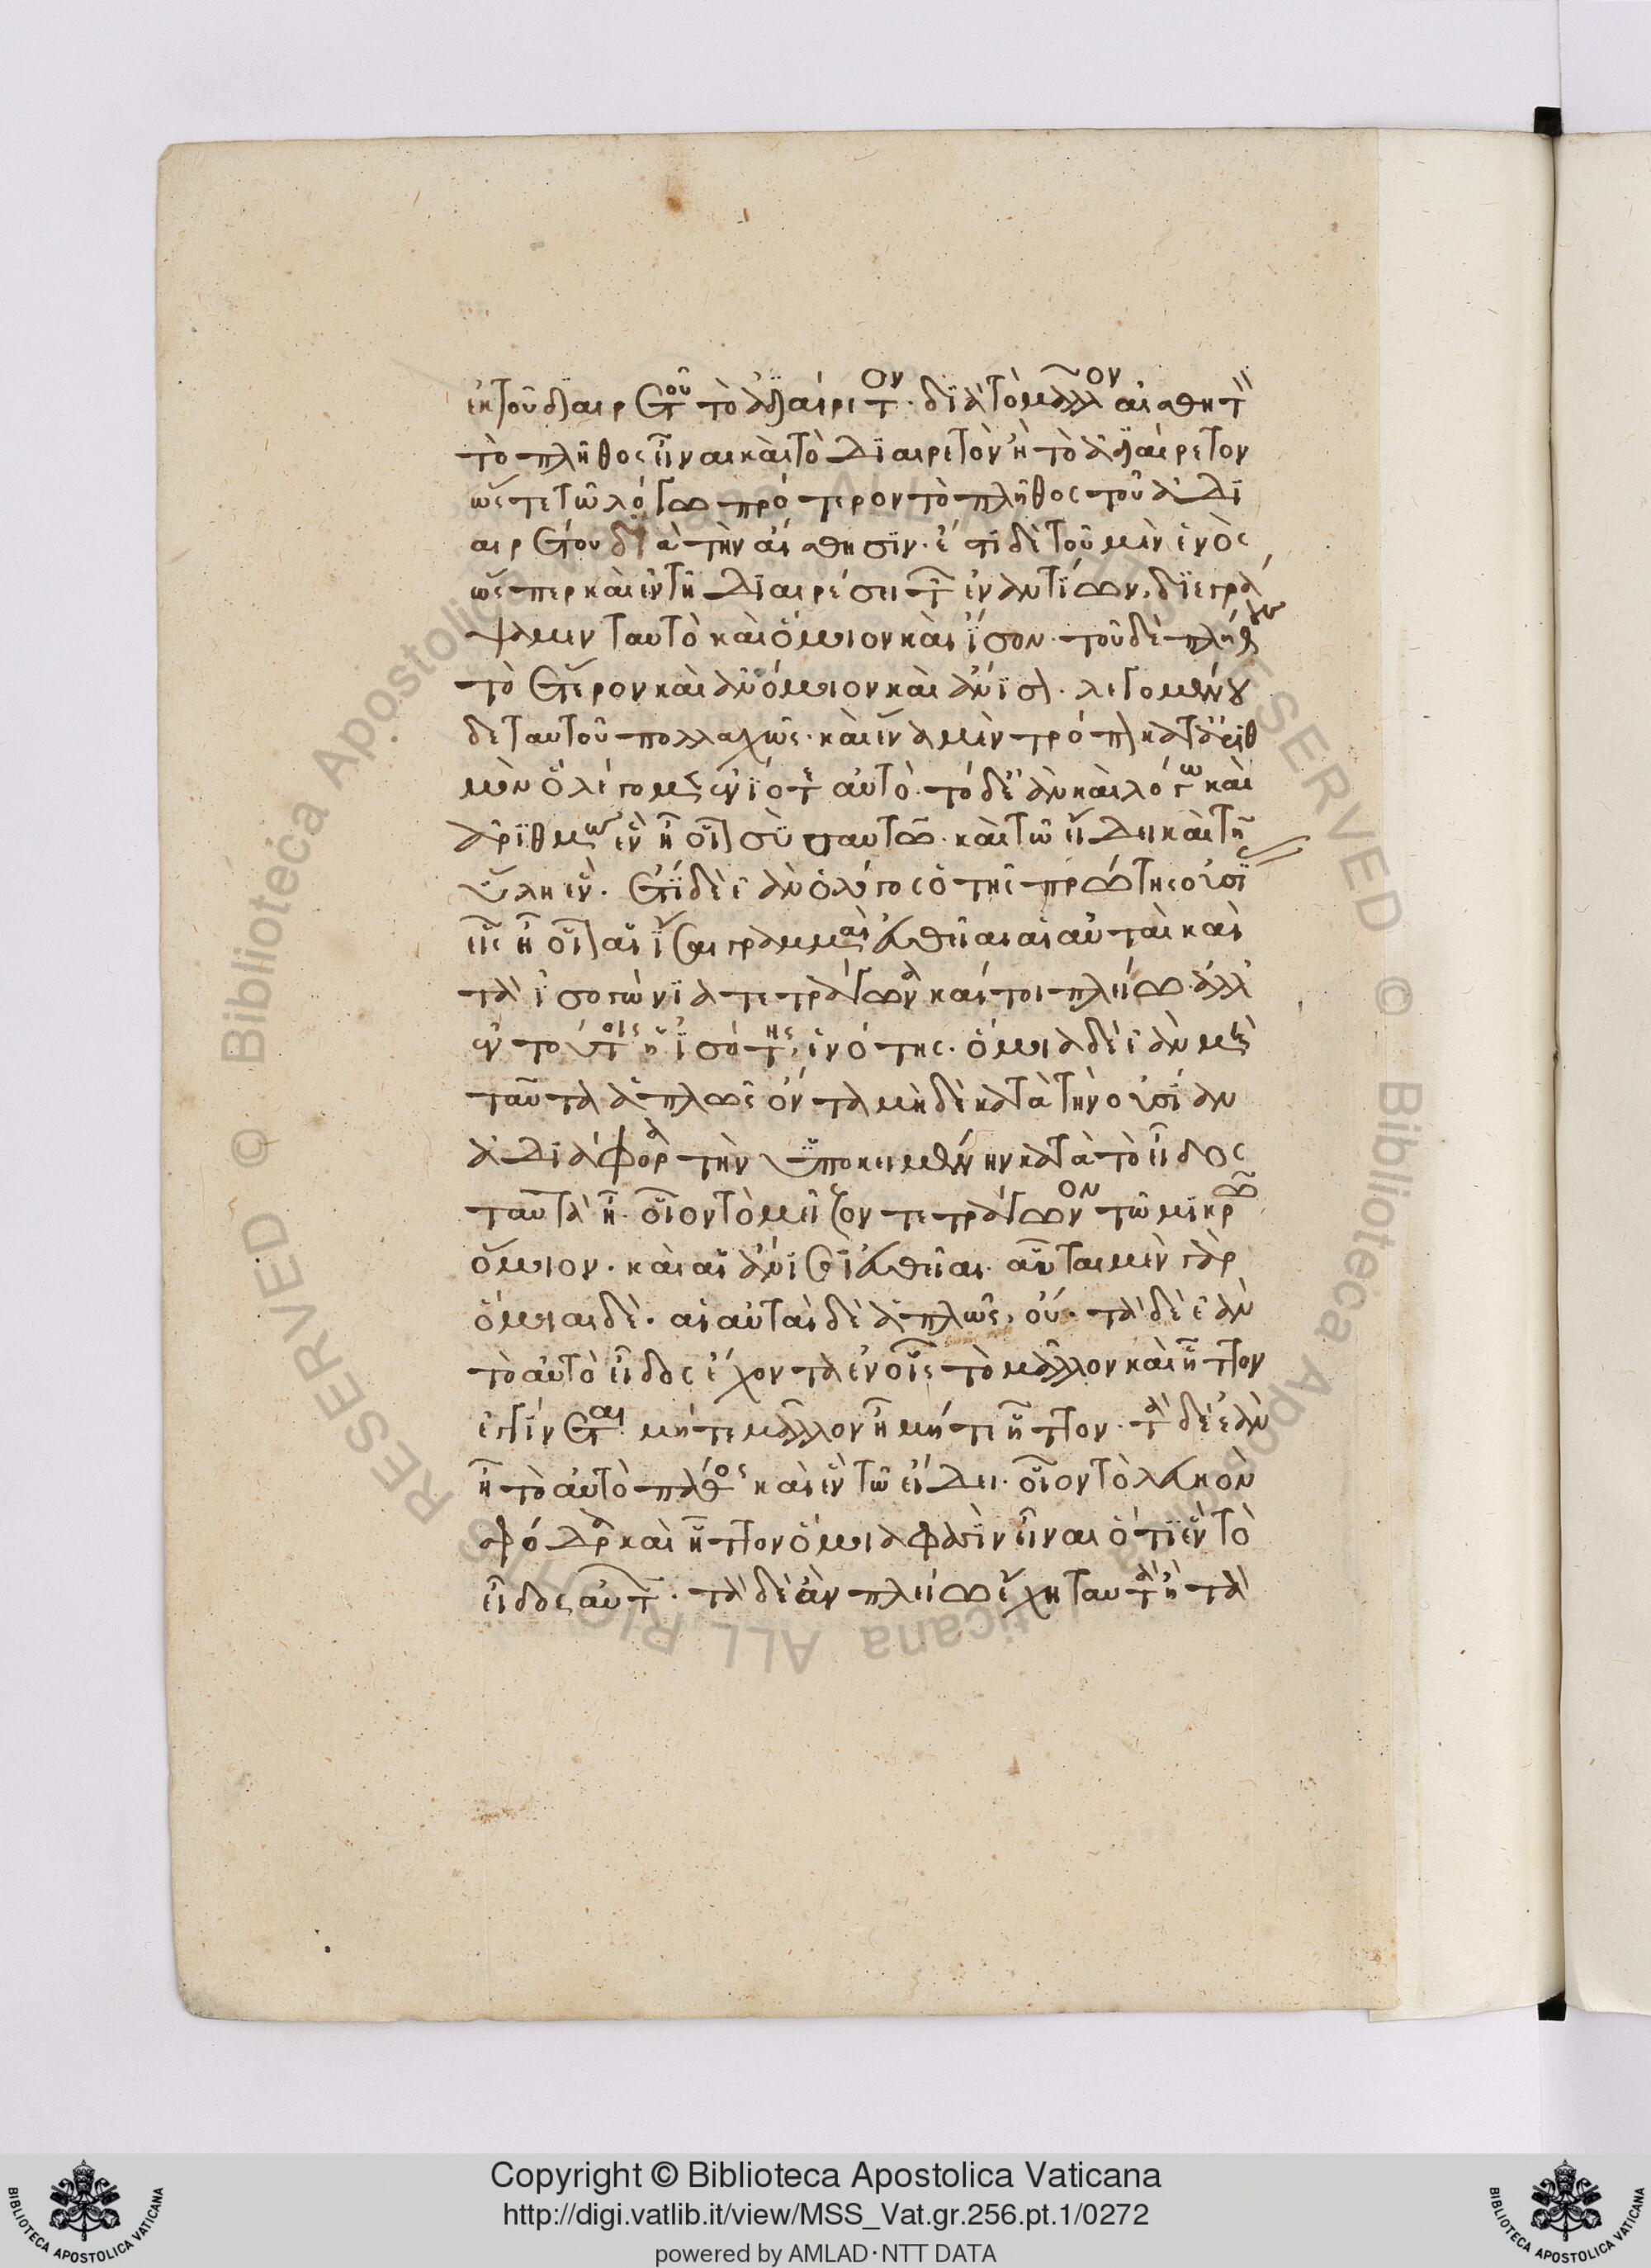 ἐκ τοῦ διαιρετοῦ τὸ ἀδιαίρετον· διὰ τὸ μᾶλλον αἰσθητὸν
τὸ πλῆθος εἶναι καὶ τὸ διαιρετὸν ἢ τὸ ἀδιαίρετον
ὥστε τῶ λόγω πρότερον τὸ πλῆθος τοῦ ἀδι
αιρέτου διὰ τὴν αἴσθησιν· ἔστι δὲ τοῦ μὲν ἑνὸς
ὥσπερ καὶ ἐν τῆ διαιρέσει τῶν ἐναντίων, διεγρά
ψαμεν ταυτὸ καὶ ὅμοιον καὶ ἴσον· τοῦ δὲ πλήθους
τὸ ἕτερον καὶ ἀνόμοιον καὶ ἄνισον· λεγομένου
δὲ ταυτοῦ πολλαχῶς· καὶ ἕνα μὲν τρόπον κατ' ἀριθ
μὸν ὃ λέγομεν ἐνίοτε αὐτό· τὸ δ' ἐὰν καὶ λόγω καὶ
ἀριθμῶ ἓν ἦ οἷον σὺ σαυτῶ· καὶ τῶ εἴδει καὶ τῆ
ὕλη ἕν· ἔτι δὲ ἐὰν ὁ λόγος ὁ τῆς πρώτης οὐσί
εἷς ἦ οἷον αἱ ἴσαι γραμμαὶ εὐθεῖαι αἱ αὐταὶ καὶ
τὰ ἰσογώνια τετράγωνα καίτοι πλείω· ἀλλ'
ἐν τούτοις ἡ ἰσότης, ἑνότης· ὅμοια δὲ ἐὰν μὴ
ταῦτα ἁπλῶς ὄντα μὴδὲ κατὰ τὴν οὐσίαν
ἀδιάφορα τὴν ὑποκειμένην κατὰ τὸ εἶδος
ταῦτα ἦ· οἷον τὸ μεῖζον τετράγωνον τῶ μικρῶ
ὅμοιον· καὶ αἱ ἄνισοι εὐθεῖαι· αὗται μὲν γὰρ
ὅμοιαι δέ· αἱ αὐταὶ δὲ ἁπλῶς, οὔ· τὰ δὲ ἐὰν
τὸ αὐτὸ εἶδος ἔχοντα ἐν οἷς τὸ μᾶλλον καὶ ἧττον
ἐγγίνεται μήτε μᾶλλον ἦ μήτε ἧττον· τὰ δὲ ἐὰν
ἦ τὸ αὐτὸ πάθος καὶ ἓν τῶ εἴδει· οἷον τὸ λευκὸν
σφόδρα καὶ ἧττον ὅμοιά φασιν εἶναι ὅτι ἓν τὸ
εἶδος αὐτῶν· τὰ δὲ ἂν πλείω ἔχη ταυτὰ ἢ τὰ
Copyright © Biblioteca Apostolica Vaticana
http://digi.vatlib.it/view/MSS_Vat.gr.256.pt.1/0272
powered by AMLAD·NTT DATA